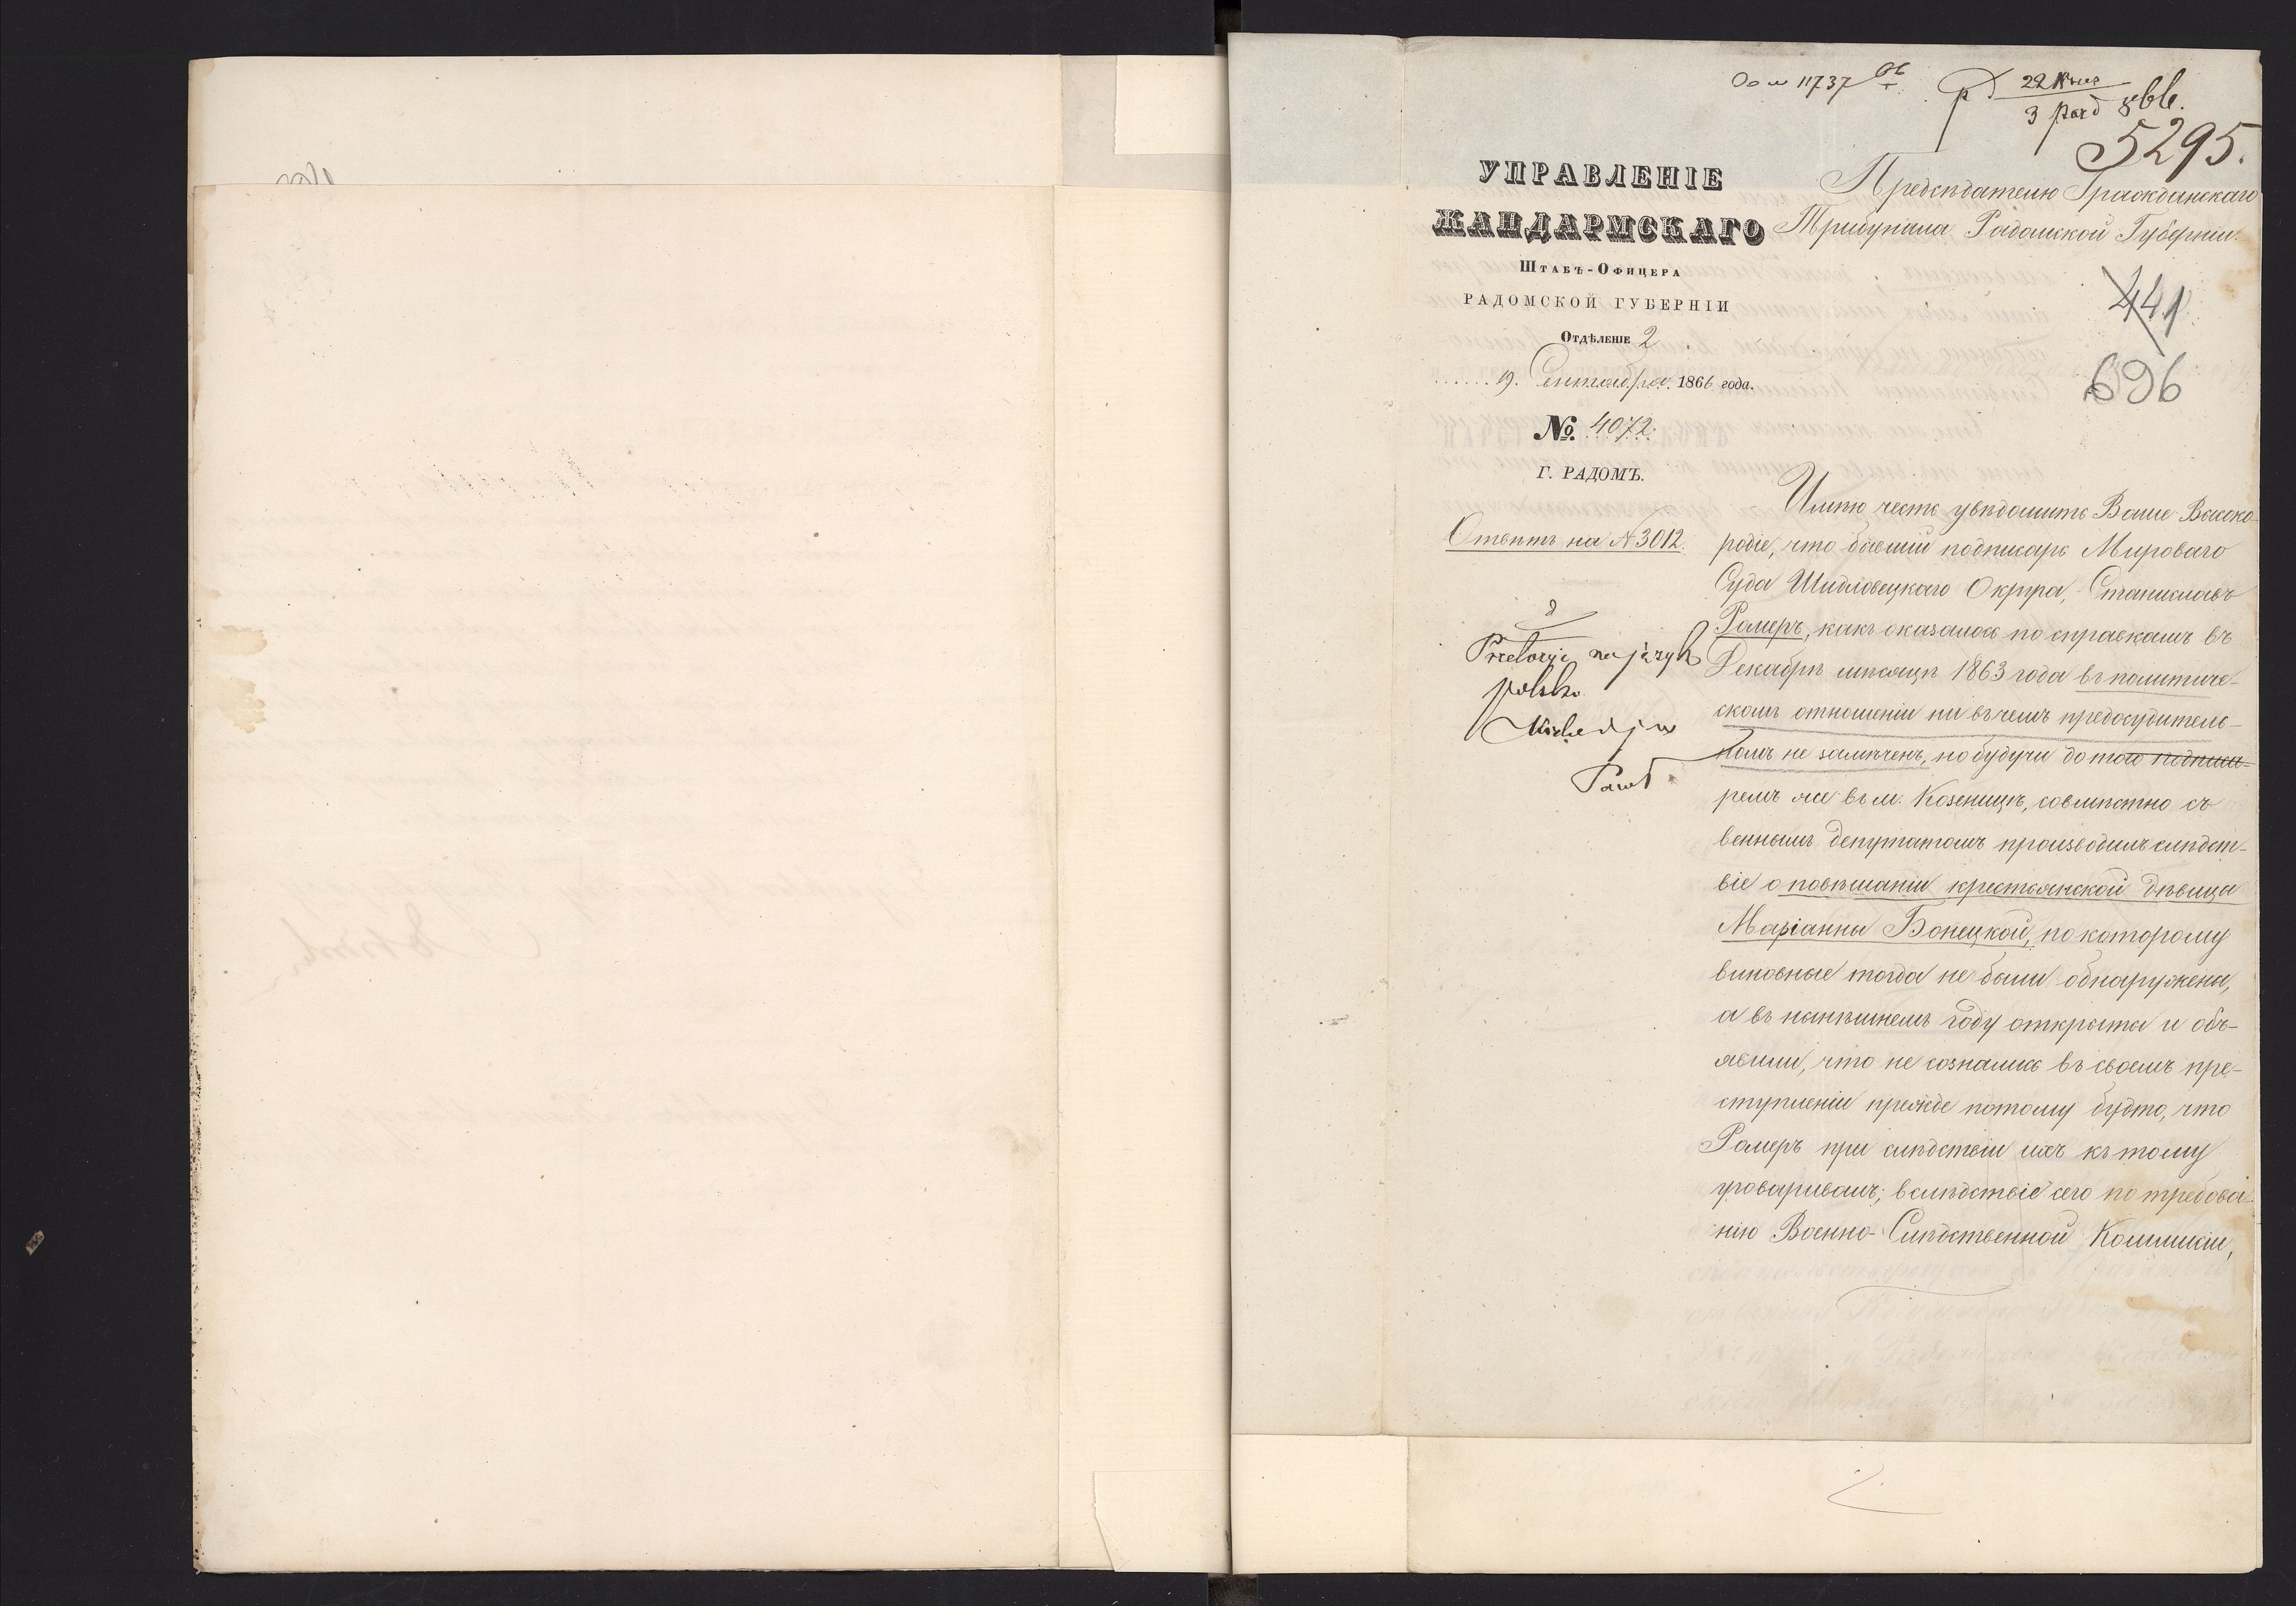 11737
22
3 866.
5295.
УПРАВЛЕНІЕ
ЖАНДАРМСКАГО
Штабъ-Офицера
РАДОМСКОЙ ГУБЕРНІИ
Отдѣленіе 2
19. Сентября. 1866 года.
№ 4072.
Г. РАДОМЪ.
Отвѣтъ на № 3012.
na język
polski
Предсѣдателю Гражданскаго
Трибунала Радомской Губерніи.
441
696
Имѣю честь увѣдомить Ваше Высоко-
родіе, что бывшій подписарь Мироваго
Суда Шидловецкаго Округа, Станиславъ
Ромеръ, какъ оказалось по справкамъ въ
Декабрѣ мѣсяцѣ 1863 года въ политиче-
скомъ отношеніи ни въ чемъ предосудитель-
номъ не замѣченъ, но будучи до того подписа-
ремъ же въ м. Козеницѣ, совмѣстно съ
веннымъ депутатомъ производилъ слѣдст-
віе о повѣшаніи крестьянской дѣвицы
Маріанны Бонецкой, по которому
виновные тогда не были обнаружены,
а въ нынѣшнемъ году открыты и объ-
явили, что не сознались въ своемъ пре-
ступленіи прежде потому будто, что
Ромеръ при слѣдствіи ихъ къ тому
уговаривалъ; вслѣдствіе сего по требова-
нію Военно-Слѣдственной Коммисіи,